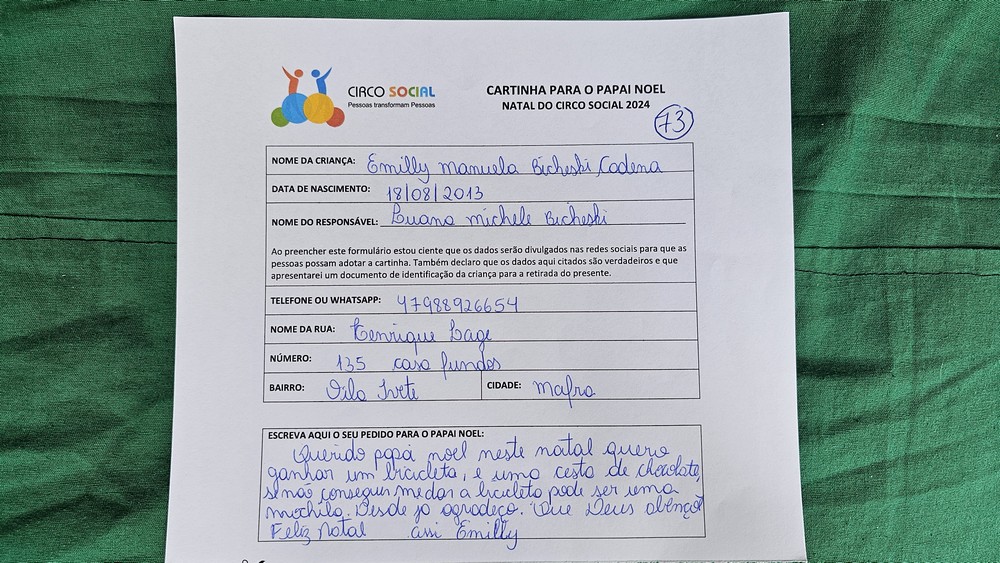 CIRCO SOCIAL
Pessoas transformam Pessoas
CARTINHA PARA O PAPAI NOEL
NATAL DO CIRCO SOCIAL 2024
73
NOME DA CRIANÇA: Emilly Manuela Bicheski Cadena
DATA DE NASCIMENTO: 18/08/2013
NOME DO RESPONSÁVEL: Luana Michele Bicheski
Ao preencher este formulário estou ciente que os dados serão divulgados nas redes sociais para que as
pessoas possam adotar a cartinha. Também declaro que os dados aqui citados são verdadeiros e que
apresentarei um documento de identificação da criança para a retirada do presente.
TELEFONE OU WHATSAPP: 47988926654
NOME DA RUA: Henrique Lage
NÚMERO: 135 casa fundos
BAIRRO: Vila Ivete CIDADE: Mafra
ESCREVA AQUI O SEU PEDIDO PARA O PAPAI NOEL:
Querido papai noel neste natal quero
ganhar um bicicleta, e uma cesta de chocolate,
se não conseguir me dar a bicicleta pode ser uma
mochila. Desde já agradeço. Que Deus abençoe
Feliz Natal assi Emilly